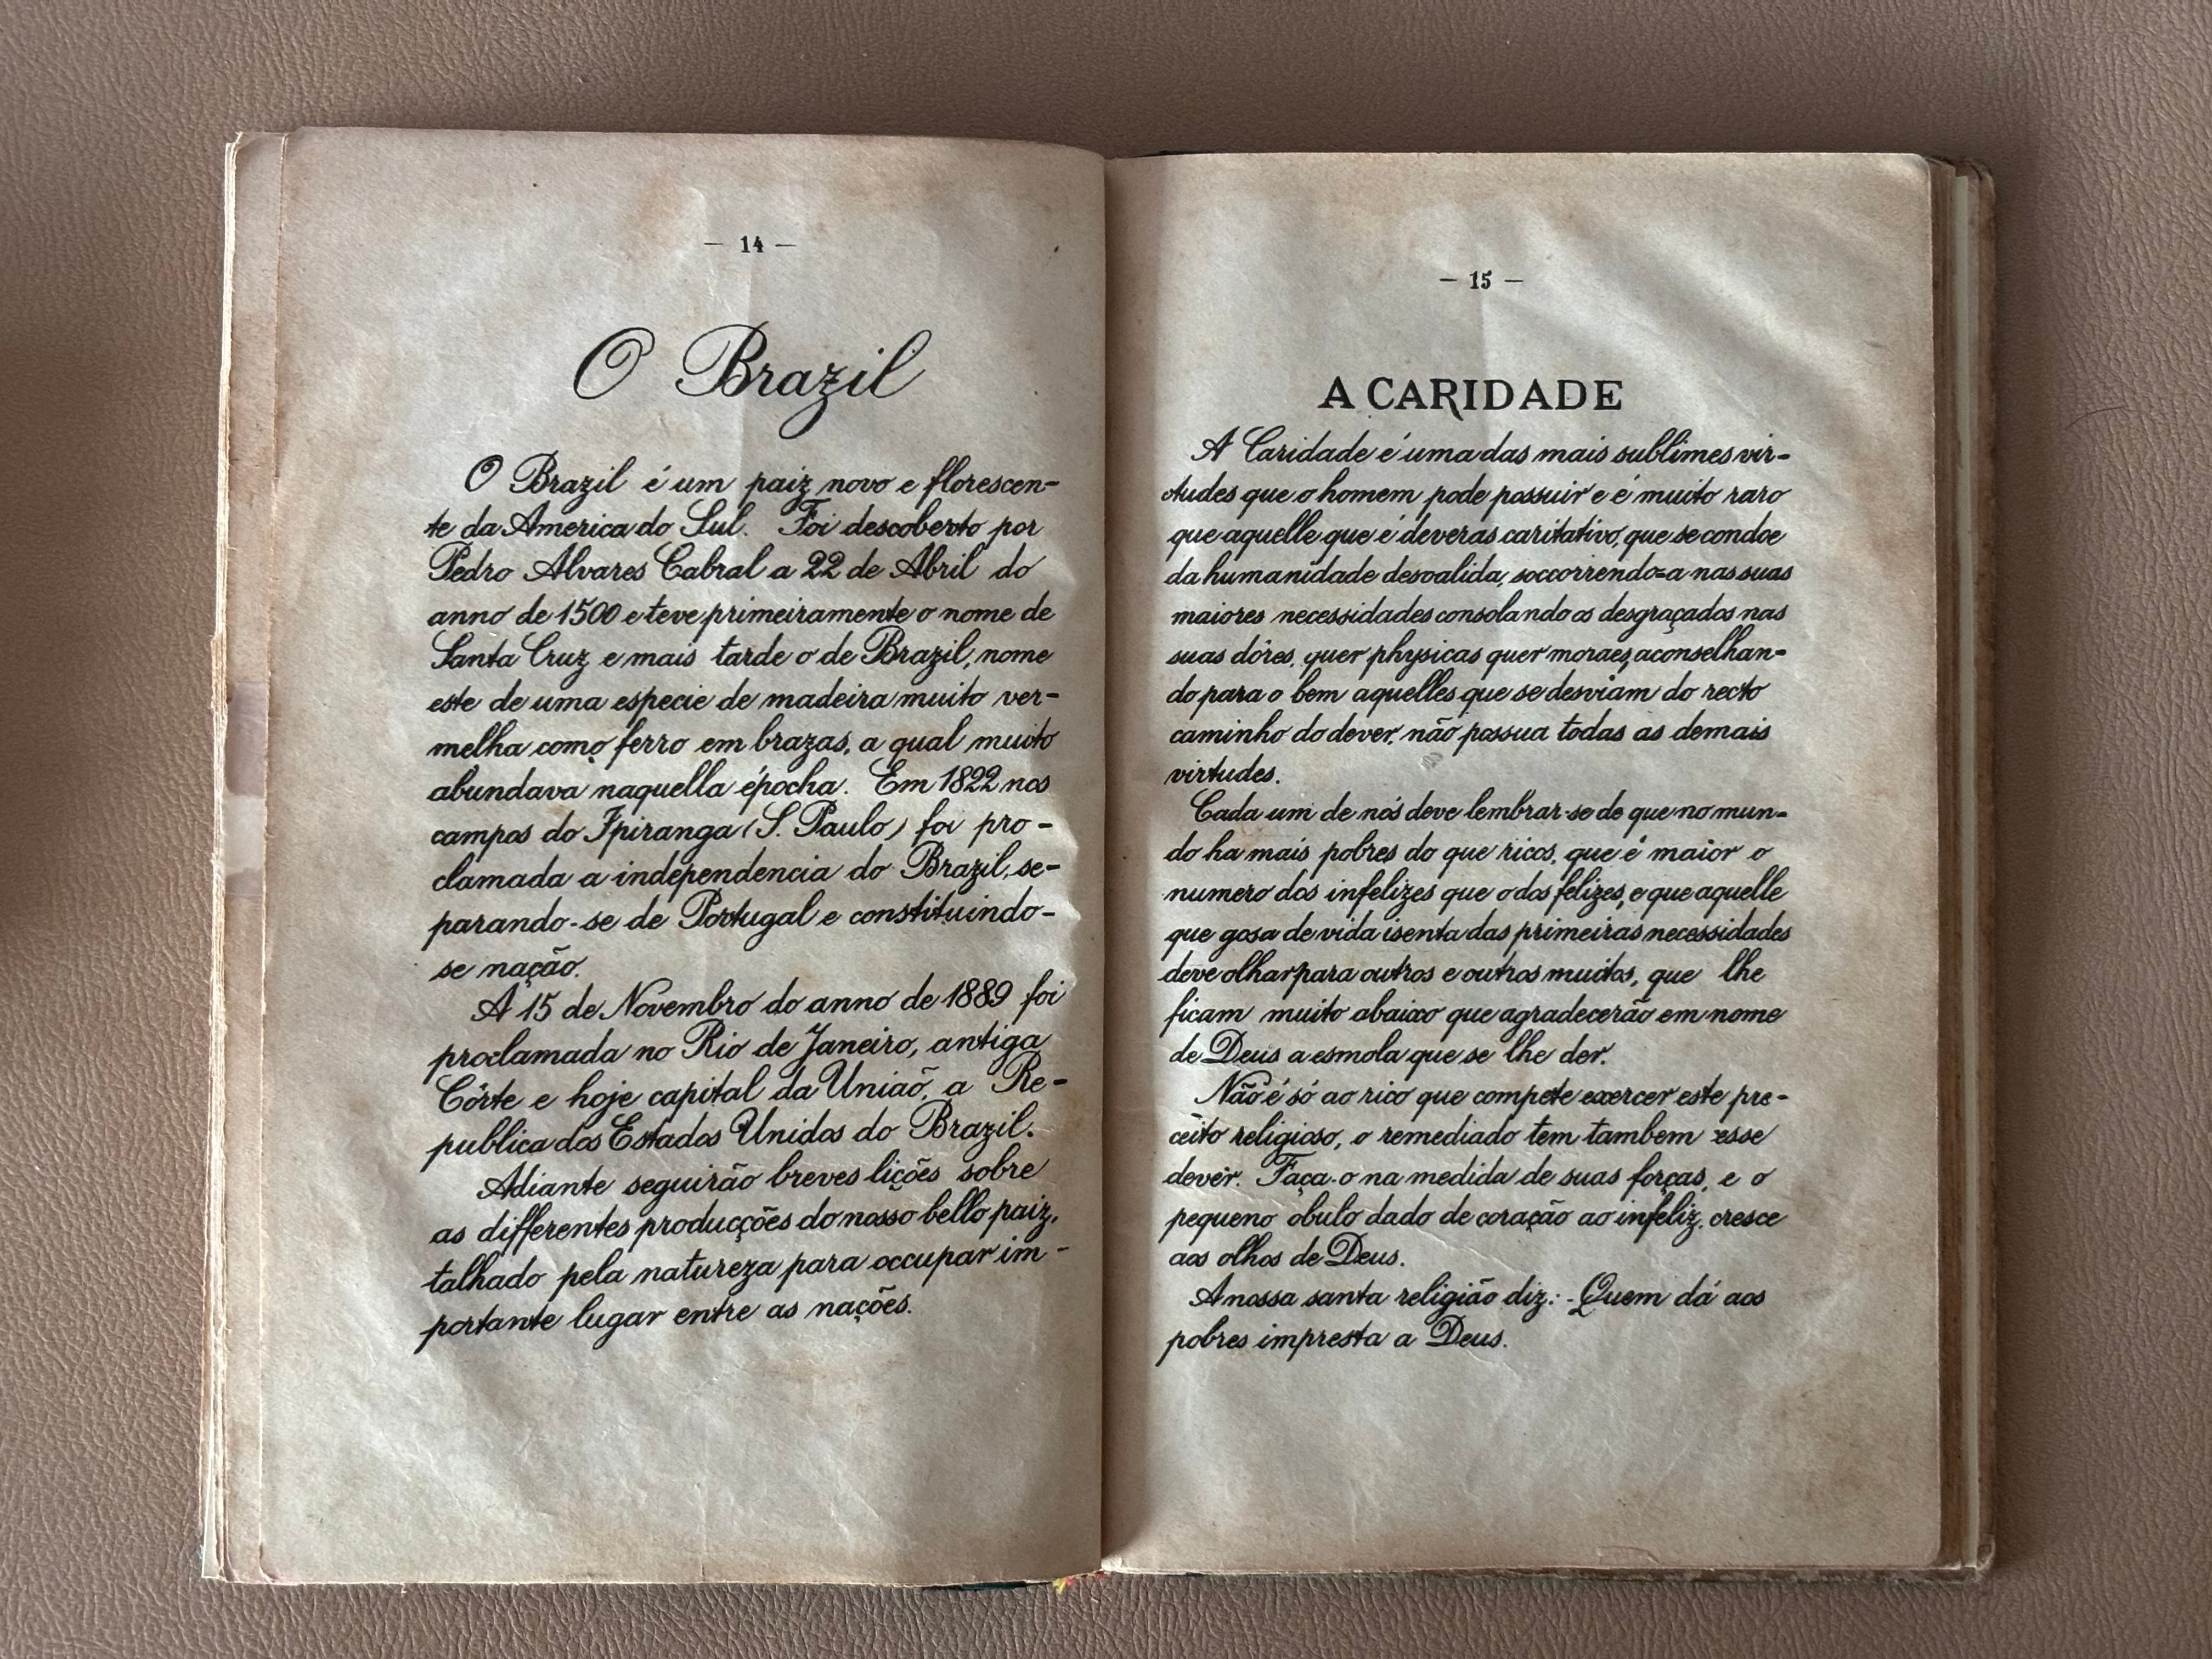 — 14 —
O Brazil
O Brazil é um paiz novo e florescen-
te da America do Sul. Foi descoberto por
Pedro Alvares Cabral a 22 de Abril do
anno de 1500 e teve primeiramente o nome de
Santa Cruz e mais tarde o de Brazil, nome
este de uma especie de madeira muito ver-
melha como ferro em brazas, a qual muito
abundava naquella épocha. Em 1822 nos
campos do Ipiranga (S. Paulo) foi pro-
clamada a independencia do Brazil, se-
parando-se de Portugal e constituindo-
se nação.
A 15 de Novembro do anno de 1889 foi
proclamada no Rio de Janeiro, antiga
Côrte e hoje capital da Uniaõ, a Re-
publica dos Estados Unidos do Brazil.
Adiante seguirão breves lições sobre
as differentes producções do nosso bello paiz,
talhado pela natureza para occupar im-
portante lugar entre as nações.
— 15 —
A CARIDADE
A Caridade é uma das mais sublimes vir-
tudes que o homem pode possuir e é muito raro
que aquelle que é deveras caritativo, que se condoe
da humanidade desvalida, soccorrendo=a nas suas
maiores necessidades consolando os desgraçados nas
suas dôres, quer physicas quer moraes, aconselhan-
do para o bem aquelles que se desviam do recto
caminho do dever, não possua todas as demais
virtudes.
Cada um de nós deve lembrar-se de que no mun-
do ha mais pobres do que ricos, que é maior o
numero dos infelizes que o dos felizes, e que aquelle
que gosa de vida isenta das primeiras necessidades
deve olhar para outros e outros muitos, que lhe
ficam muito abaixo que agradecerão em nome
de Deus a esmola que se lhe der.
Não é só ao rico que compete exercer este pre-
ceito religioso, o remediado tem tambem esse
devêr. Faça-o na medida de suas forças, e o
pequeno obulo dado de coração ao infeliz, cresce
aos olhos de Deus.
A nossa santa religião diz: - Quem dá aos
pobres impresta a Deus.